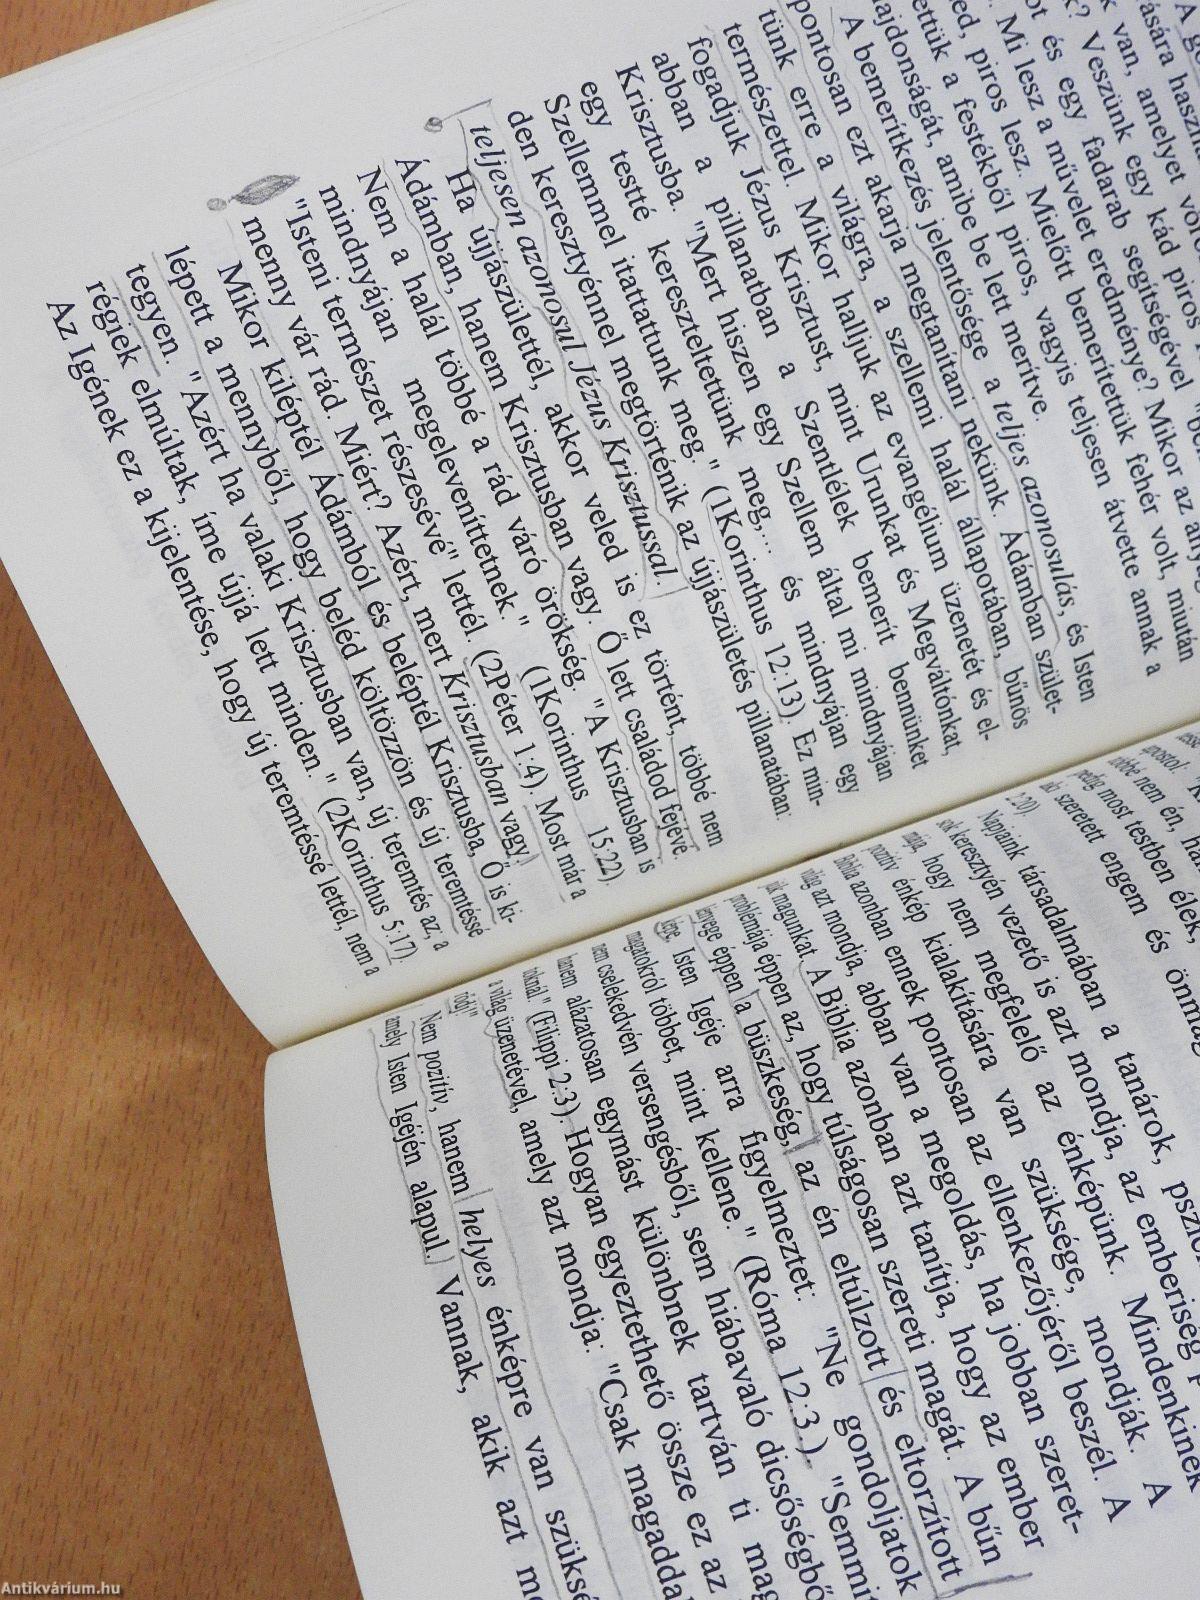 A
ására
k van, amelyet
k? Veszünk egy kád piros
ot és egy fadarab segítségével
. Mi lesz a művelet eredménye? Mikor az
ed, piros lesz. Mielőtt bemerítettük fehér volt, miután
ettük a festékből piros, vagyis teljesen átvette annak a
ajdonságát, amibe be lett merítve.
A bemerítkezés jelentősége a teljes azonosulás, és Isten
pontosan ezt akarja megtanítani nekünk. Ádámban szület-
tünk erre a világra, a szellemi halál állapotában, bűnös
természettel. Mikor halljuk az evangélium üzenetét és el-
fogadjuk Jézus Krisztust, mint Urunkat és Megváltónkat,
abban a pillanatban a Szentlélek bemerít bennünket
Krisztusba. "Mert hiszen egy Szellem által mi mindnyájan
egy testté kereszteltettünk meg,... és mindnyájan egy
Szellemmel itattattunk meg. " (1Korinthus 12:13). Ez min-
den keresztyénnel megtörténik az újjászületés pillanatában:
teljesen azonosul Jézus Krisztussal.
Ha újjászülettél, akkor veled is ez történt, többé nem
Ádámban, hanem Krisztusban vagy. Ő lett családod fejévé.
Nem a halál többé a rád váró örökség. "A Krisztusban is
mindnyájan megeleveníttetnek." (1Korinthus 15:22).
"Isteni természet részesévé" lettél. (2Péter 1:4). Most már a
menny vár rád. Miért? Azért, mert Krisztusban vagy.
Mikor kiléptél Ádámból és beléptél Krisztusba, Ő is ki-
lépett a mennyből, hogy beléd költözzön és új teremtéssé
tegyen. "Azért ha valaki Krisztusban van, új teremtés az, a
régiek elmúltak, íme újjá lett minden. " (2Korinthus 5:17).
Az Igének ez a kijelentése, hogy új teremtéssé lettél, nem a
apostol:
többé nem én,
pedig most testben élek,
aki szeretett engem és
2:20).
Napjaink társadalmában a tanárok,
sok keresztyén vezető is azt mondja, az emberiség
mája, hogy nem megfelelő az énképünk. Mindenkinek
pozitív énkép kialakítására van szüksége, mondják. A
Biblia azonban ennek pontosan az ellenkezőjéről beszél. A
világ azt mondja, abban van a megoldás, ha jobban szeret-
jük magunkat. A Biblia azonban azt tanítja, hogy az ember
problémája éppen az, hogy túlságosan szereti magát. A bűn
lényege éppen a büszkeség, az én eltúlzott és eltorzított
képe. Isten Igéje arra figyelmeztet: "Ne gondoljatok
magatokról többet, mint kellene." (Róma 12:3.). "Semmit
nem cselekedvén versengésből, sem hiábavaló dicsőségből
hanem alázatosan egymást különbnek tartván ti
toknál." (Filippi 2:3). Hogyan egyeztethető össze ez az
a világ üzenetével, amely azt mondja: "Csak magaddal
Nem pozitív, hanem helyes énképre van
amely Isten Igéjén alapul. Vannak, akik azt
Antikvárium.hu